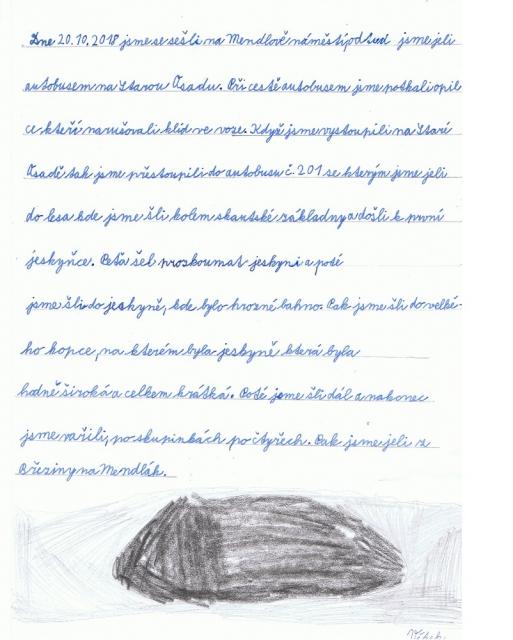 Dne 20.10.2018 jsme se sešli na Mendlově náměstí, odtud jsme jeli
autobusem na Starou Osadu. Při cestě autobusem jsme potkali opil
ce, kteří narušovali klid ve voze. Když jsme vystoupili na Staré
Osadě tak jsme přestoupili do autobusu č. 201 se kterým jsme jeli
do lesa kde jsme šli kolem skautské základny a došli k první
jeskyňce. Peťa šel prozkoumat jeskyni a poté
jsme šli do jeskyně, kde bylo hrozné bahno. Pak jsme šli do velké-
ho kopce, na kterém byla jeskyně která byla
hodně široká a celkem krátká. Poté jsme šli dál a nakonec
jsme vařili, po skupinkách po čtyřech. Pak jsme jeli z
Březiny na Mendlák.